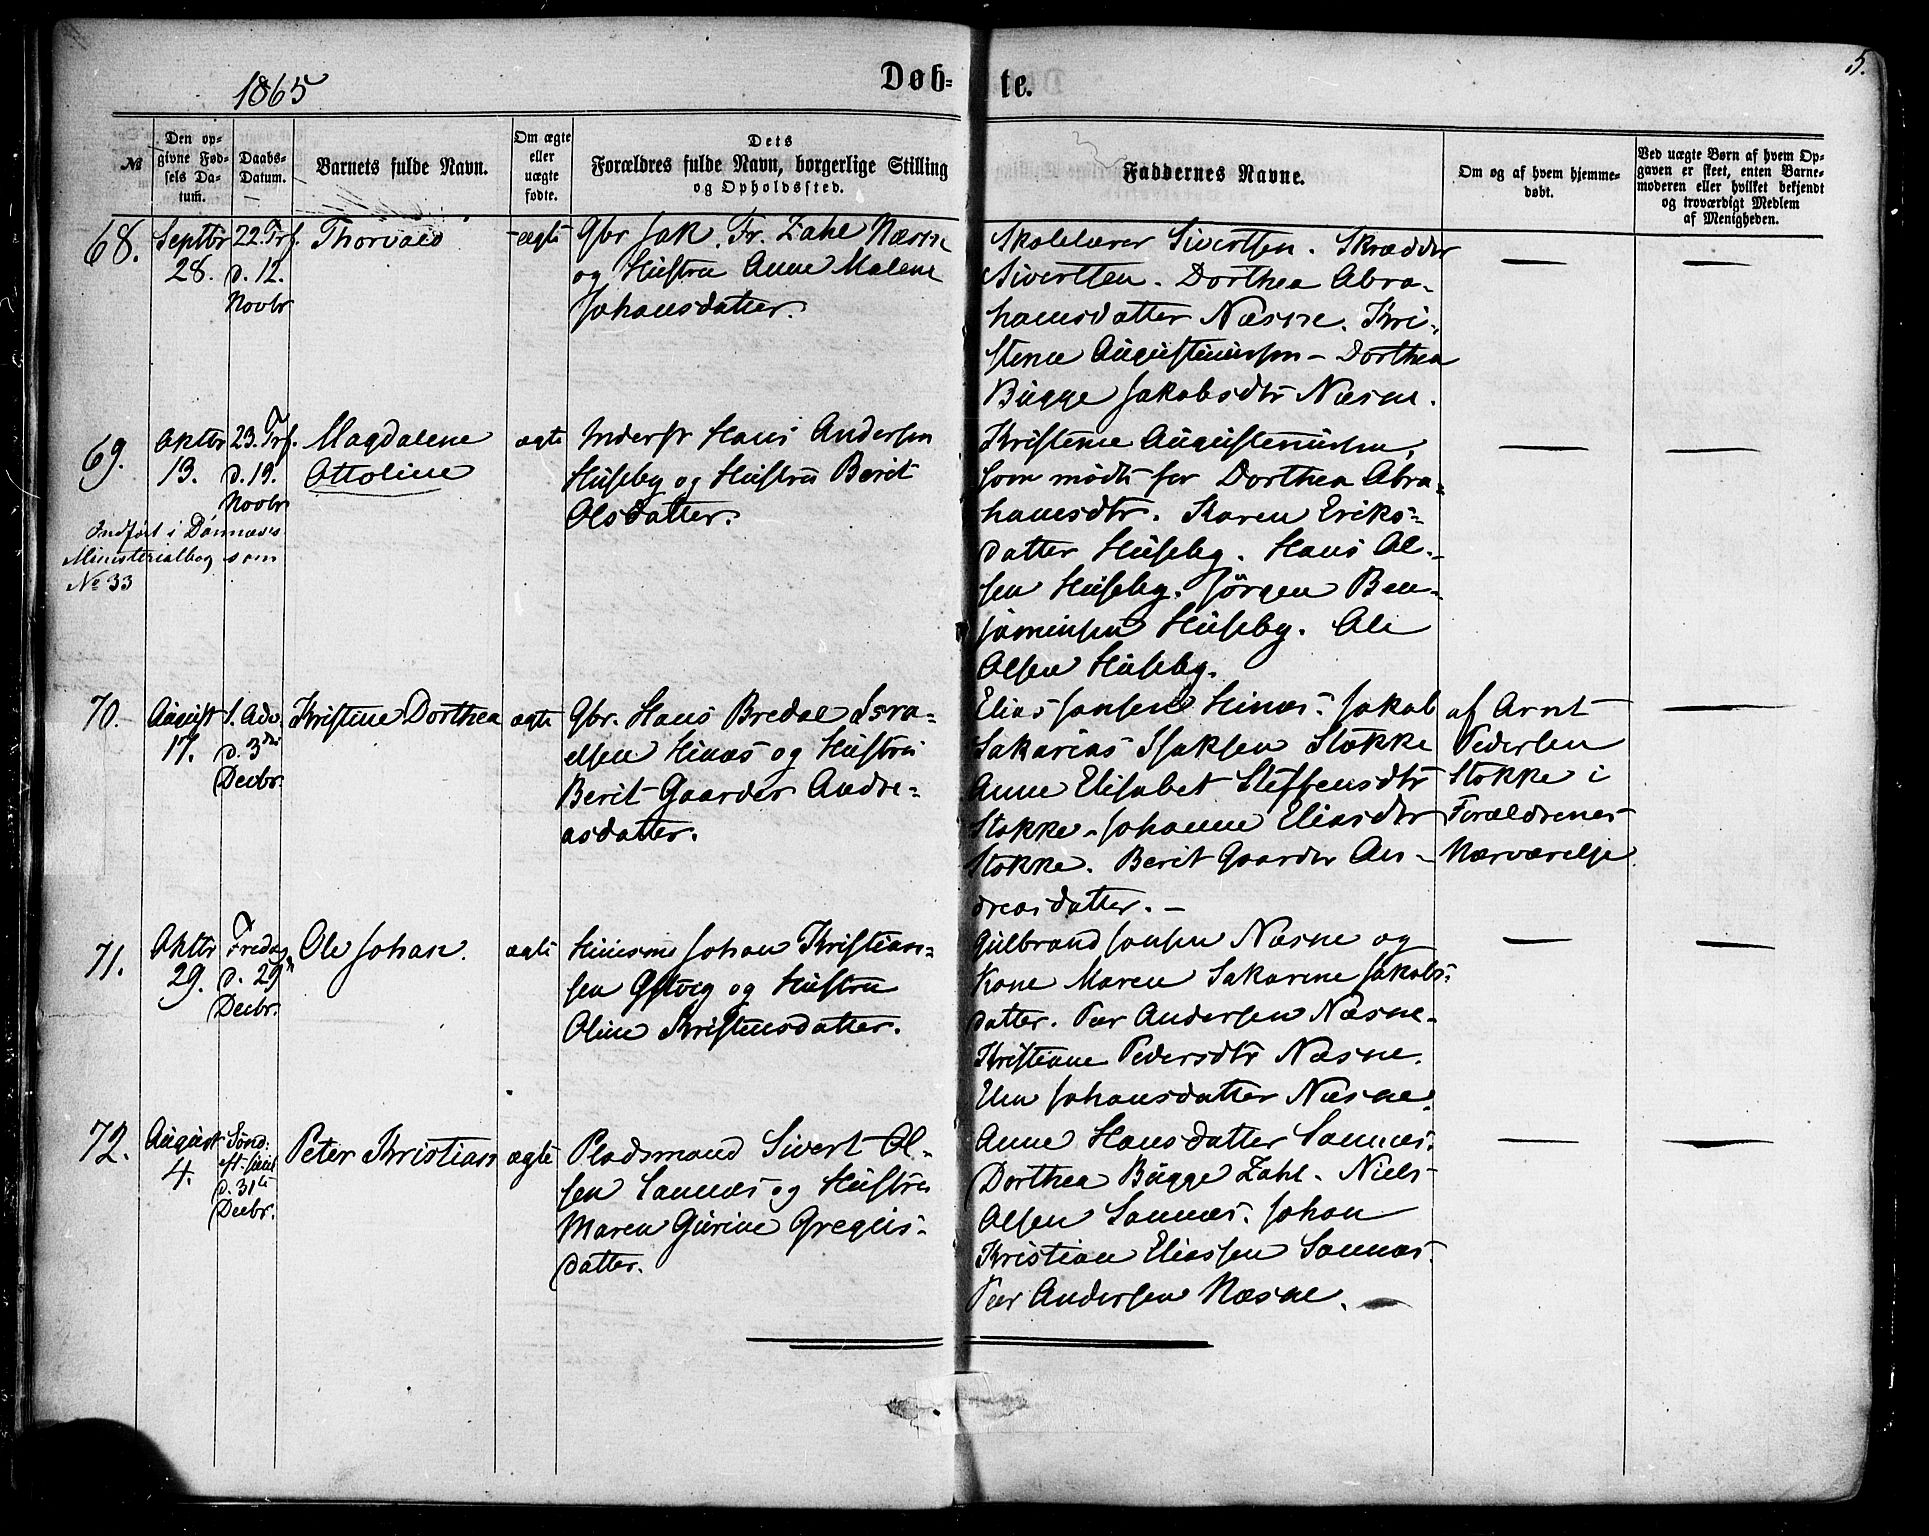 1865
Døb-
te.
5.
№
Den op-
givne Fød-
sels Da-
tum.
Daabs-
Datum.
Barnets fulde Navn.
Om ægte
eller
uægte
fødte.
Dets
Forældres fulde Navn, borgerlige Stilling
og Opholdssted.
Faddernes Navne.
Om og af hvem hjemme-
døbt.
Ved uægte Børn af hvem Op-
gaven er skeet, enten Barne-
moderen eller hvilket bekjendt
og troværdigt Medlem
af Menigheden.
68.
Septbr
28.
22. Trf.
d. 12.
Novbr
Thorvald
ægte
Gbr. Jak. Fr. Zahl Næsne
og Hustru Anne Malene
Johansdatter.
Skolelærer Sivertsen. Skrædder
Sivertsen. Dorthea Abra-
hamsdatter Næsne. Kri-
stense Augustinussen - Dorthea
Bugge Jakobsdtr Næsne.
—
—
69.
Oktbr
13.
23. Trf.
d. 19.
Novbr
Magdalene
Ottoline
ægte
Inderst Hans Andersen
Huseby og Hustru Berit
Olsdatter.
Kristense Augustinussen,
som mødte for Dorthea Abra-
hamsdtr. Karen Eriks-
datter Huseby. Hans Ol-
sen Huseby. Jørgen Ben-
jaminsen Huseby. Ole
Olsen Huseby.
—
—
Indført i Dønnæs
Ministerialbog som
No 33
70.
August
17.
1. Adv.
d. 3die
Decbr.
Kristine Dorthea
ægte
Gbr. Hans Bredal Isra-
elsen Hinæs og Hustru
Berit Gaarder Andre-
asdatter.
Elias Jonsen Hinæs. Jakob
Sakarias Isaksen Stokke
Anne Elisabet Steffensdtr
Stokke - Johanne Eliasdtr
Stokke. Berit Gaarder An-
dreasdatter. —
af Arnt
Pedersen
Stokke i
Forældrenes
Nærværelse
—
71.
Oktbr
29.
Fredag
d. 29
Decbr.
Ole Johan.
ægte
Huusm. Johan Kristian-
sen Østvig og Hustru
Oline Kristensdatter.
Gulbrand Jonsen Næsne og
Kone Maren Sakarine Jakobs-
datter. Peer Andersen Næsne-
Kristiane Pedersdtr Næsne.
Elen Johansdatter Næsne.
—
—
72.
August
4.
Sønd.
eft. Juul
d. 31te
Decbr.
Peter Kristian
ægte
Pladsmand Sivert Ol-
sen Sannæs og Hustru
Maren Gurine Gregus-
datter.
Anne Hansdatter Sannæs.
Dorthea Bugge Zahl. Niels
Olsen Sannæs. Johan
Kristian Eliassen Sannæs.
Peer Andersen Næsne.
—
—